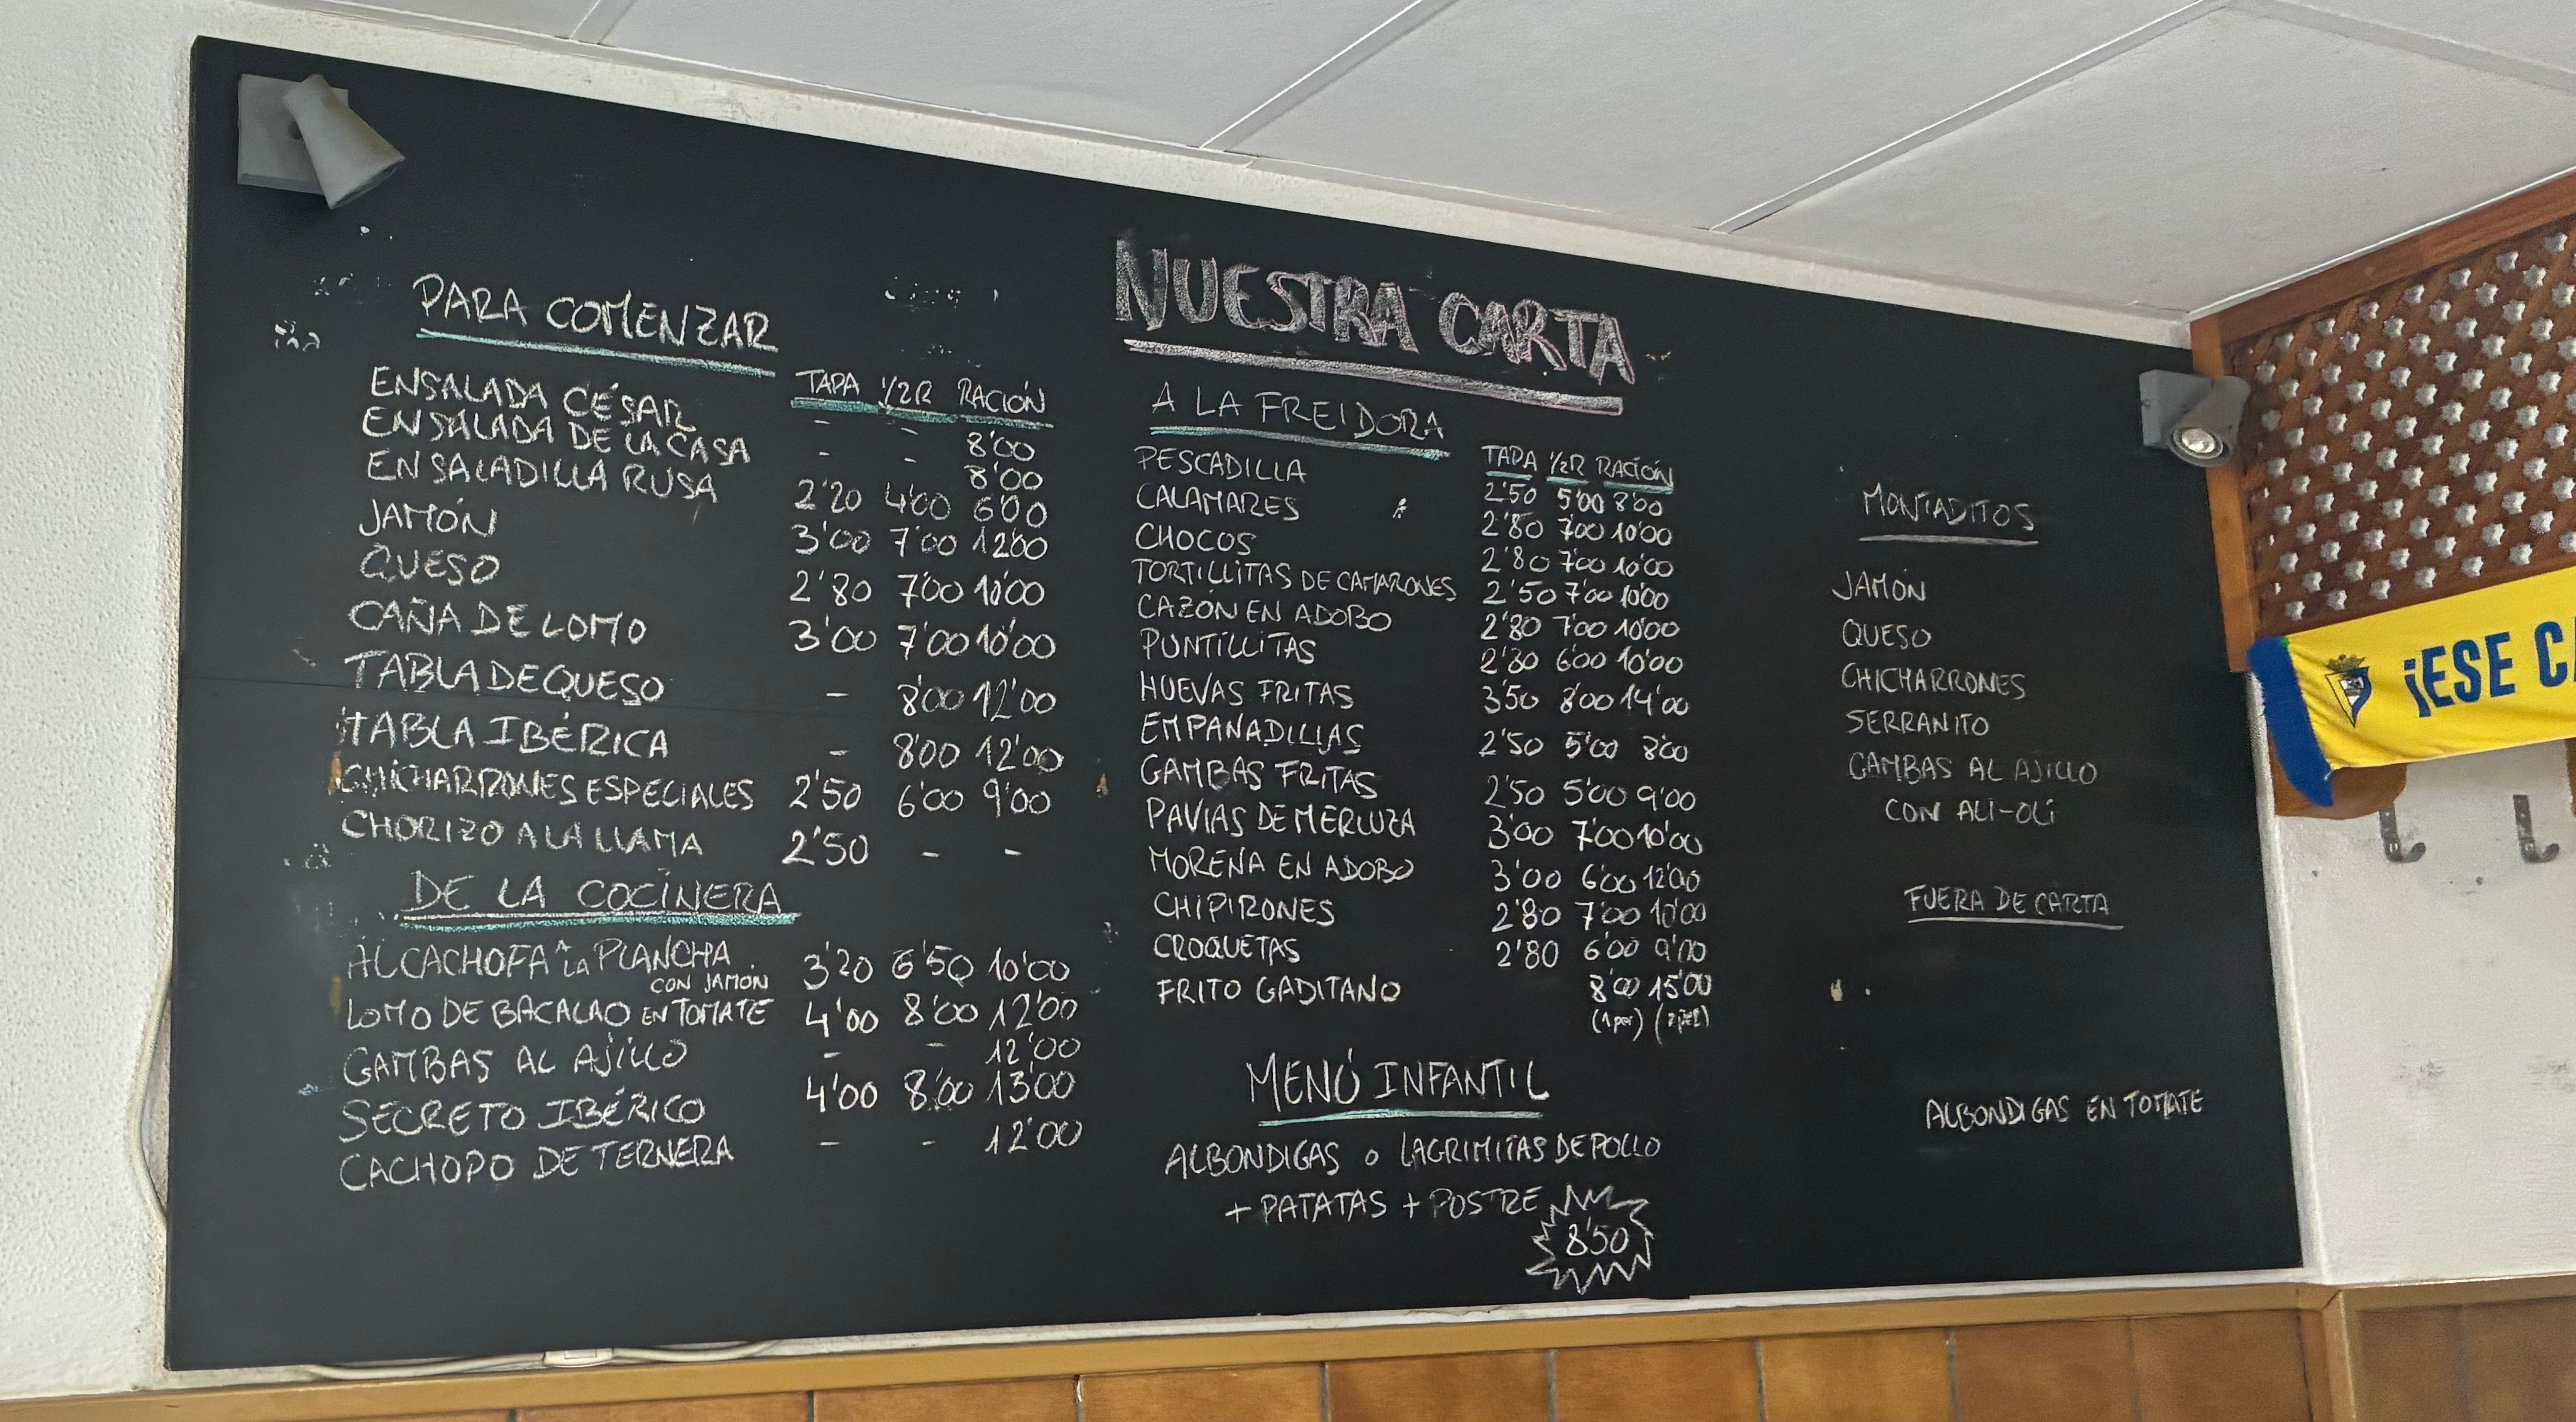 NUESTRA CARTA
PARA COMENZAR
TAPA 1/2R RACIÓN
ENSALADA CÉSAR - - 8'00
ENSALADA DE LA CASA - - 8'00
ENSALADILLA RUSA 2'20 4'00 6'00
JAMÓN 3'00 7'00 12'00
QUESO 2'80 7'00 10'00
CAÑA DE LOMO 3'00 7'00 10'00
TABLA DE QUESO - 8'00 12'00
TABLA IBÉRICA - 8'00 12'00
CHICHARRONES ESPECIALES 2'50 6'00 9'00
CHORIZO A LA LLAMA 2'50 - -
DE LA COCINERA
ALCACHOFA A LA PLANCHA 3'20 6'50 10'00
CON JAMÓN
LOMO DE BACALAO EN TOMATE 4'00 8'00 12'00
GAMBAS AL AJILLO - - 12'00
SECRETO IBÉRICO 4'00 8'00 13'00
CACHOPO DE TERNERA - - 12'00
A LA FREIDORA
TAPA 1/2R RACIÓN
PESCADILLA 2'50 5'00 8'00
CALAMARES 2'80 7'00 10'00
CHOCOS 2'80 7'00 10'00
TORTILLITAS DE CAMARONES 2'50 7'00 10'00
CAZÓN EN ADOBO 2'80 7'00 10'00
PUNTILLITAS 2'80 6'00 10'00
HUEVAS FRITAS 3'50 8'00 14'00
EMPANADILLAS 2'50 5'00 8'00
GAMBAS FRITAS 2'50 5'00 9'00
PAVIAS DE MERLUZA 3'00 7'00 10'00
MORENA EN ADOBO 3'00 6'00 12'00
CHIPIRONES 2'80 7'00 10'00
CROQUETAS 2'80 6'00 9'00
FRITO GADITANO 8'00 15'00
(1 per) (2 per)
MENÚ INFANTIL
ALBONDIGAS o LAGRIMITAS DE POLLO
+ PATATAS + POSTRE
8'50
MONTADITOS
JAMÓN
QUESO
CHICHARRONES
SERRANITO
GAMBAS AL AJILLO
CON ALI-OLI
FUERA DE CARTA
ALBONDIGAS EN TOMATE
¡ESE CA